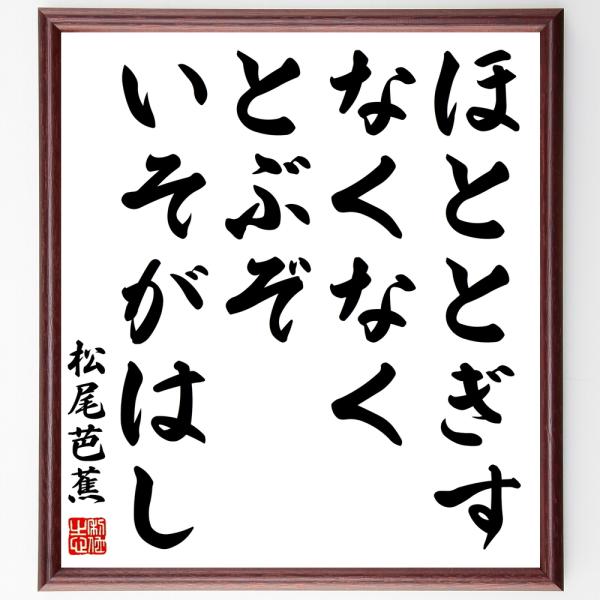 ほととぎす
なくなく
とぶぞ
いそがはし
松尾芭蕉